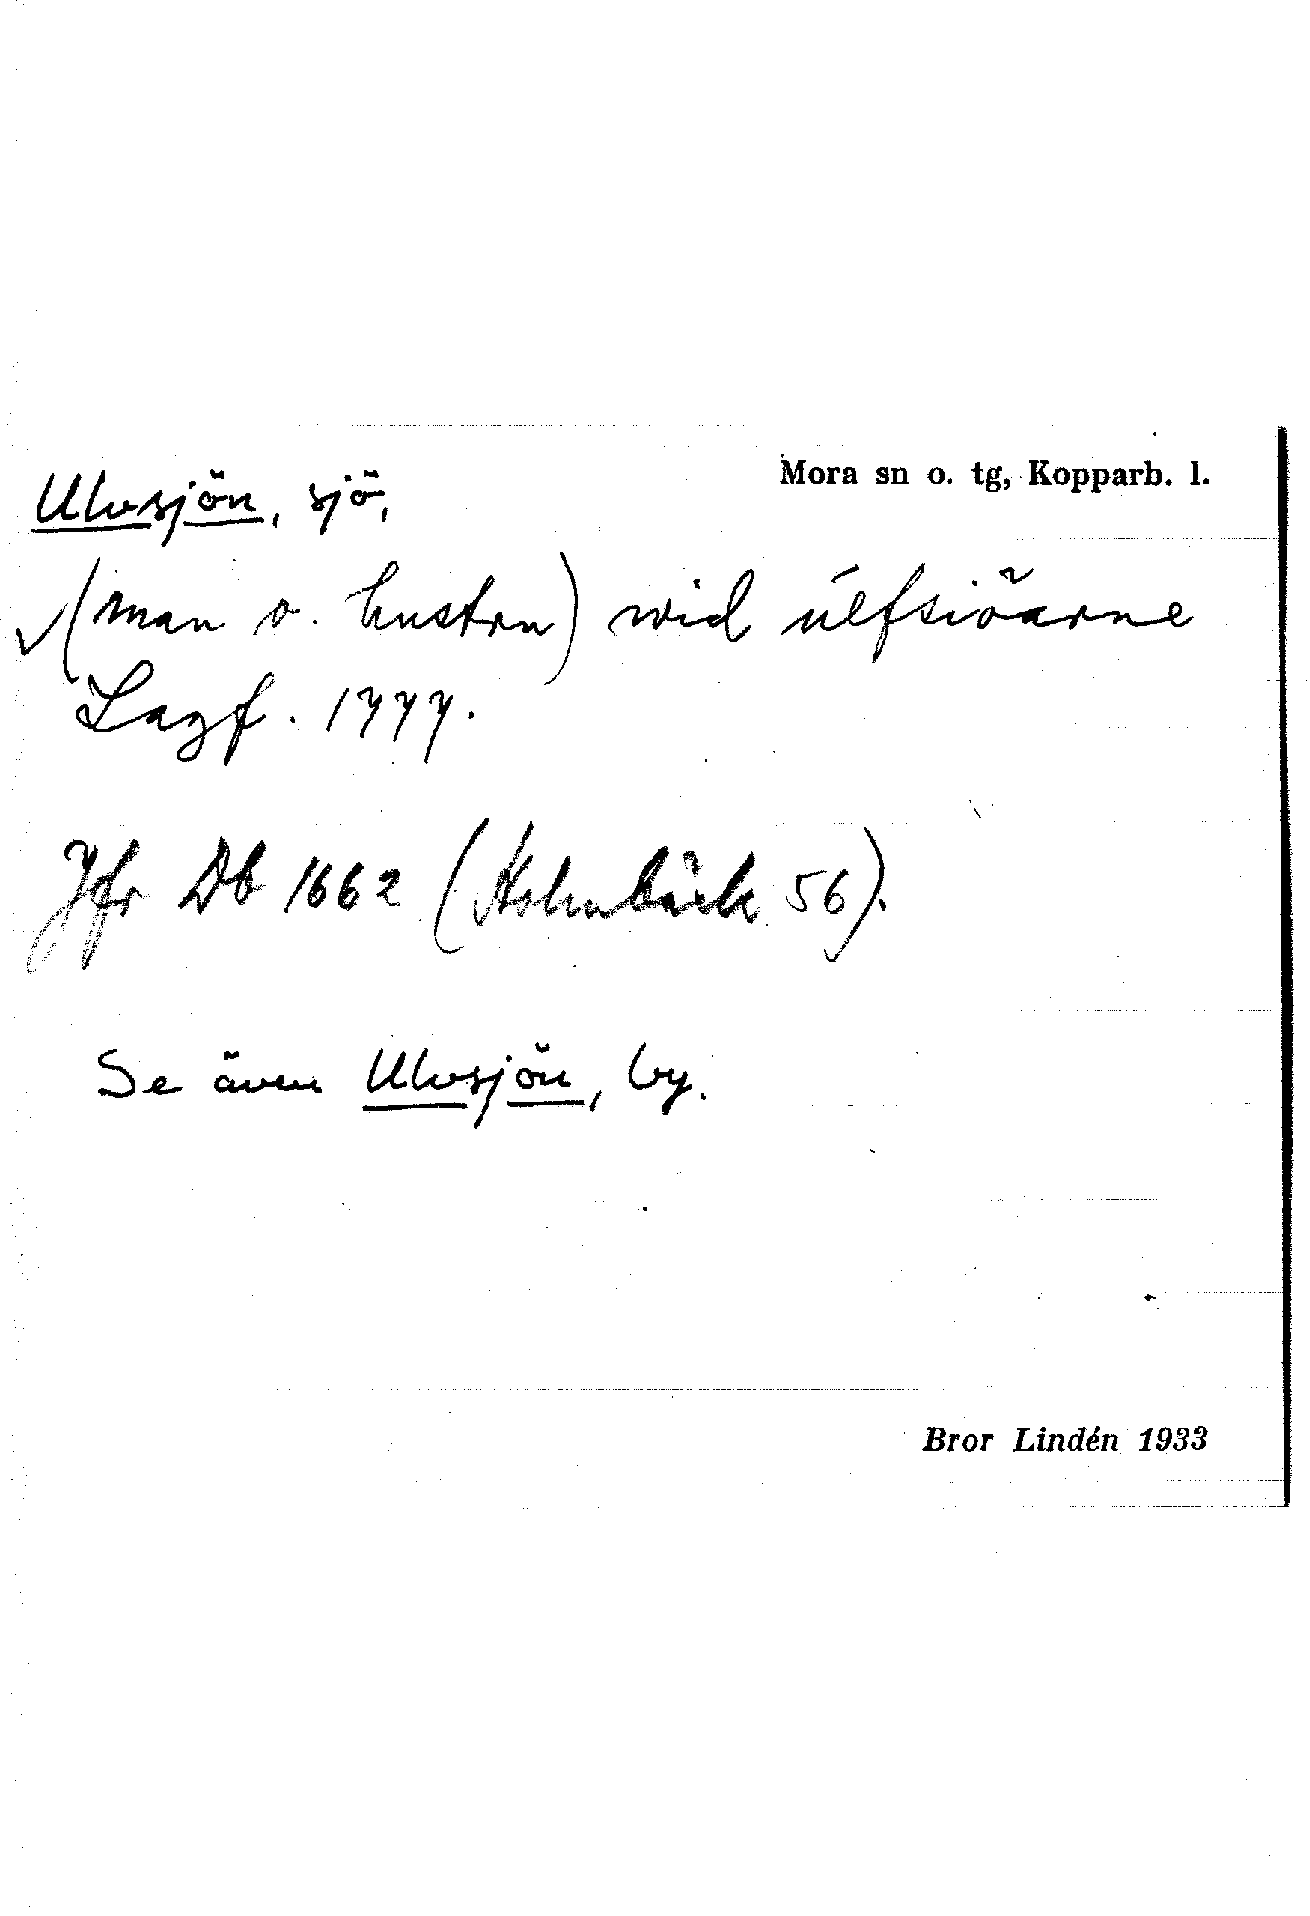 Mora sn o. tg, Kopparb. l.
Ulvsjön, sjö,
(man o. hustru) wid úlfsiöarne
Lagf. 1777.
Jfr Db 1662 (Holmbäck 56).
Se även Ulvsjön, by.
Bror Lindén 1933